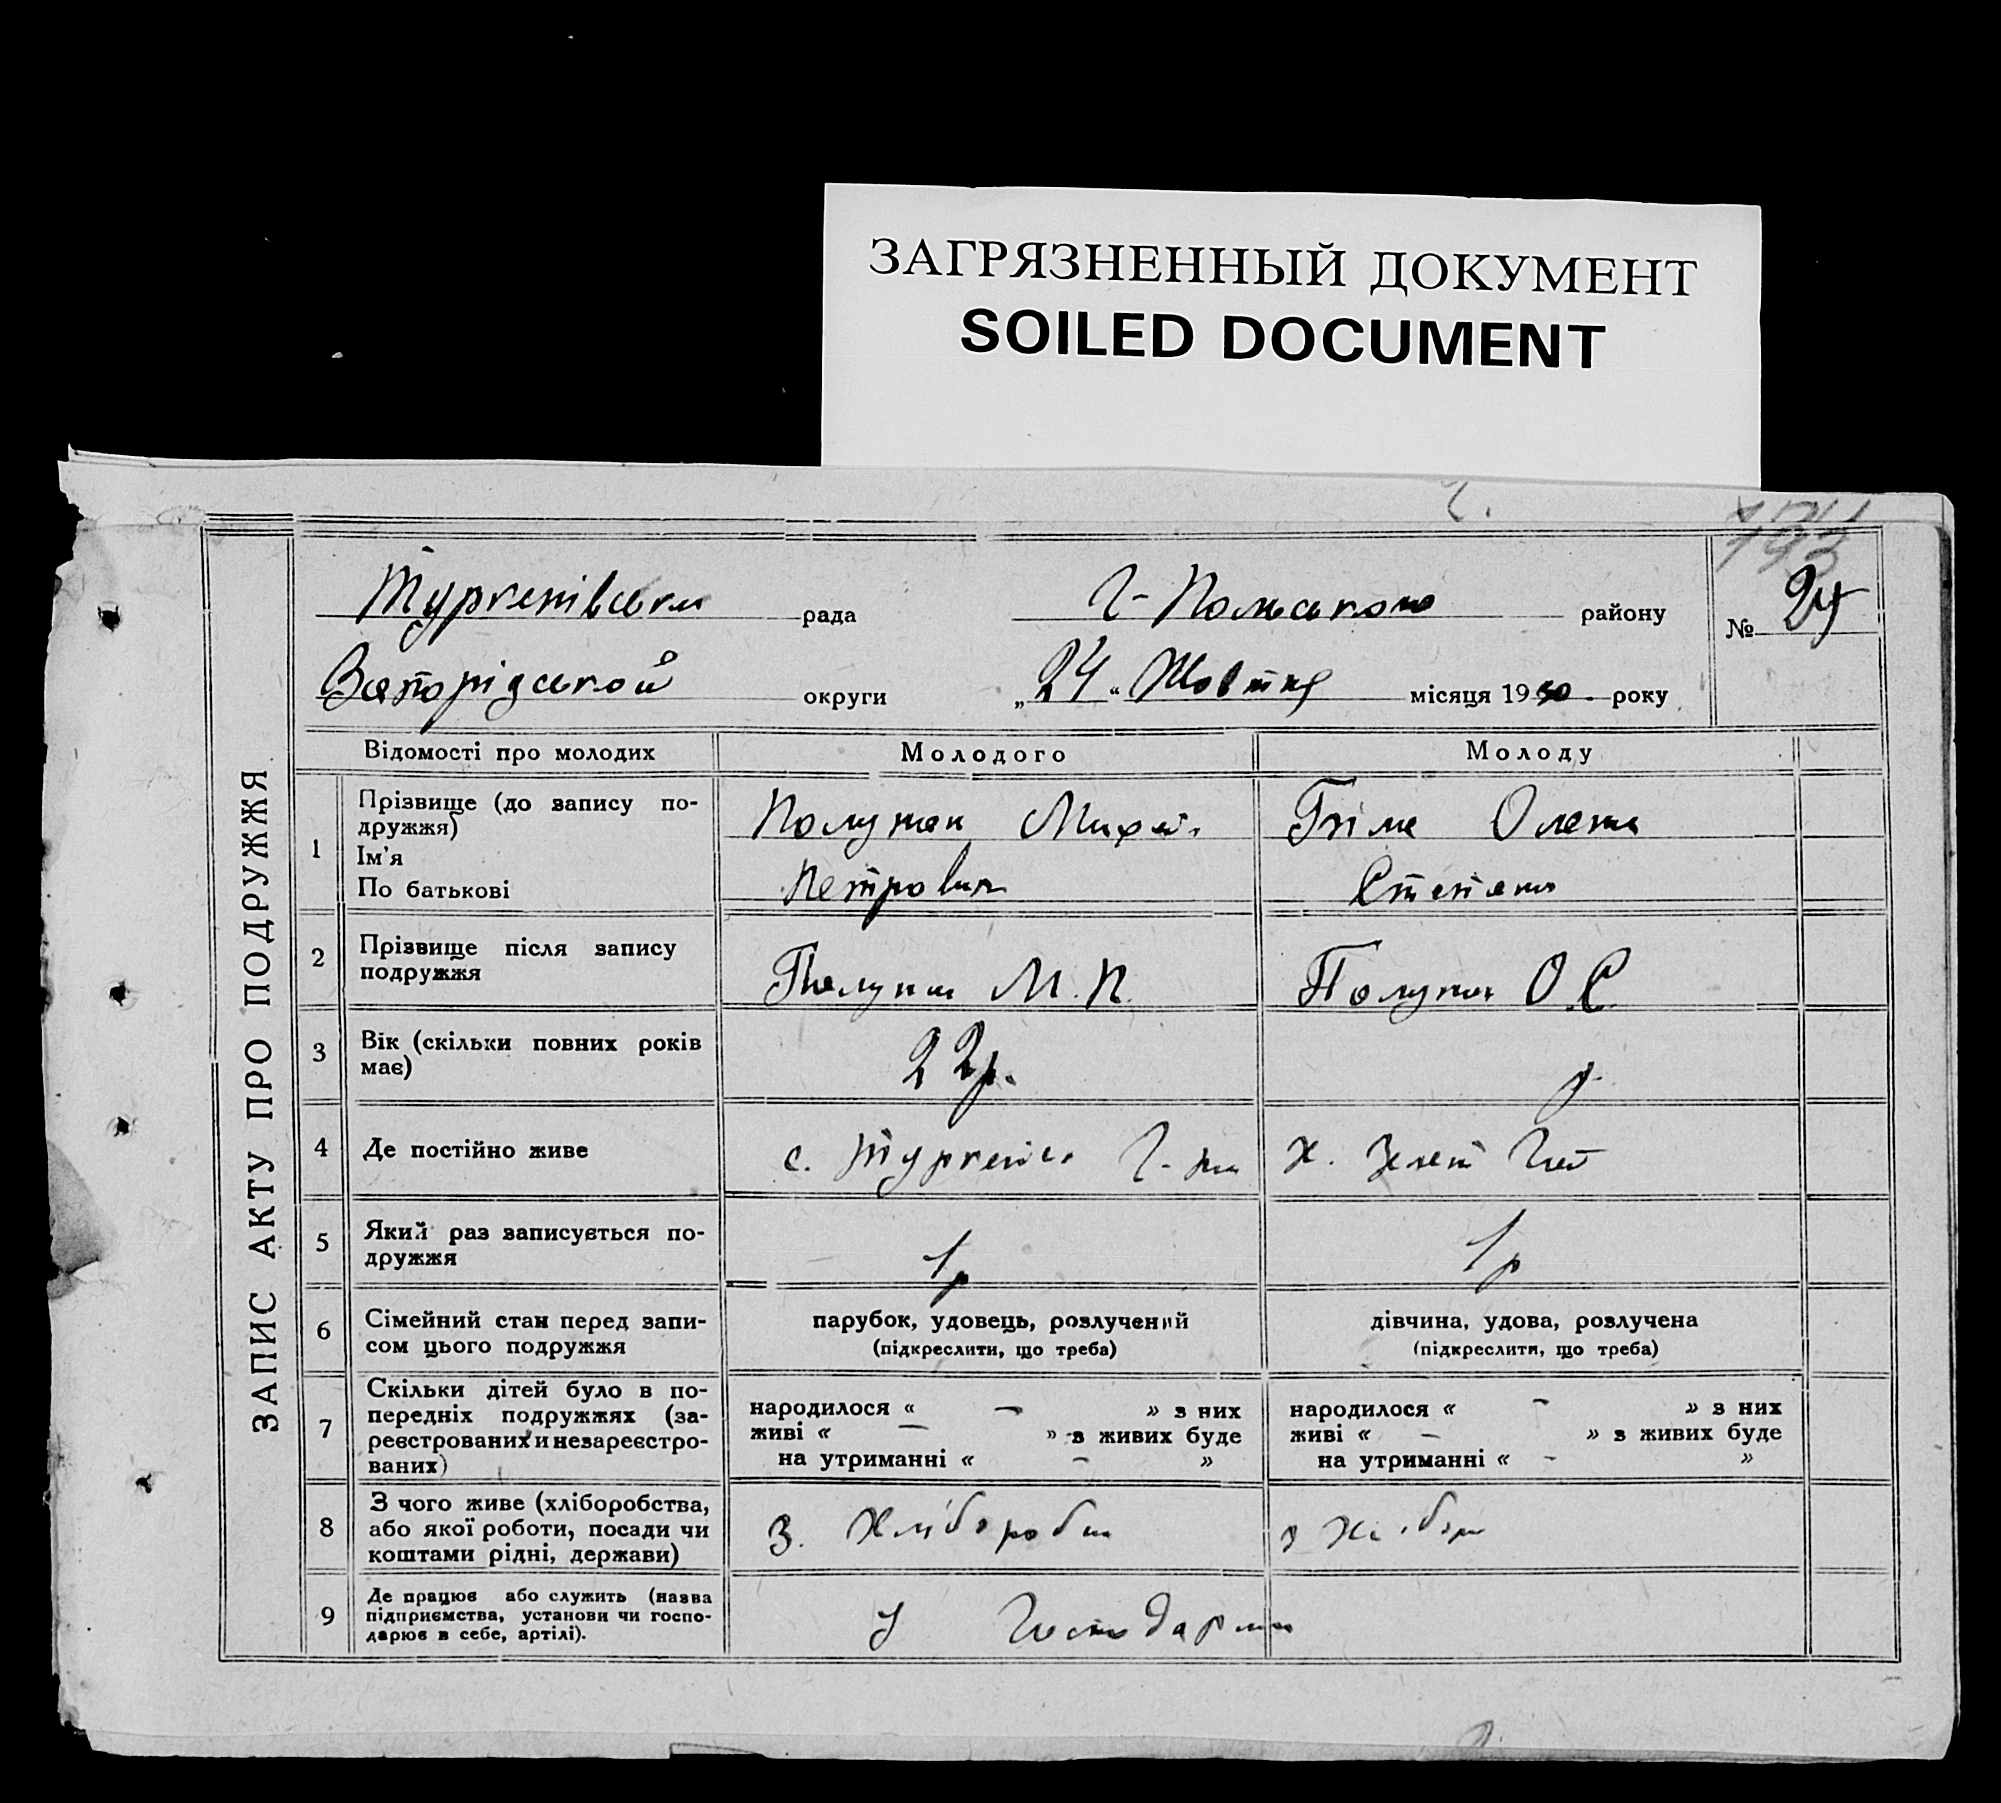 ЗАГРЯЗНЕННЫЙ ДОКУМЕНТ
SOILED DOCUMENT
793
ЗАПИС АКТУ ПРО ПОДРУЖЖЯ
рада Г-Польского району № 24
округи „24“ Жовтня місяця 1930 року
Відомості про молодих Молодого Молоду
1 Прізвище (до запису подружжя) Ім'я По батькові
Полупан Михай. Петрович
Олена Степан
2 Прізвище після запису подружжя
Полупан М.П.
Полупан О.С.
3 Вік (скільки повних років має) 22р.
4 Де постійно живе с. Х. Зелен Гай
5 Який раз записується подружжя 1р 1р
6 Сімейний стан перед записом цього подружжя
парубок, удовець, розлучений
(підкреслити, що треба)
дівчина, удова, розлучена
(підкреслити, що треба)
7 Скільки дітей було в попередніх подружжях (зареєстрованих и незареєстрованих)
народилося « – » з них
живі « – » з живих буде
на утриманні « – »
народилося « – » з них
живі « – » з живих буде
на утриманні « – »
8 З чого живе (хліборобства, або якої роботи, посади чи коштами рідні, держави)
З. Хлібороби
з
9 Де працює або служить (назва підприємства, установи чи господарює в себе, артілі).
У